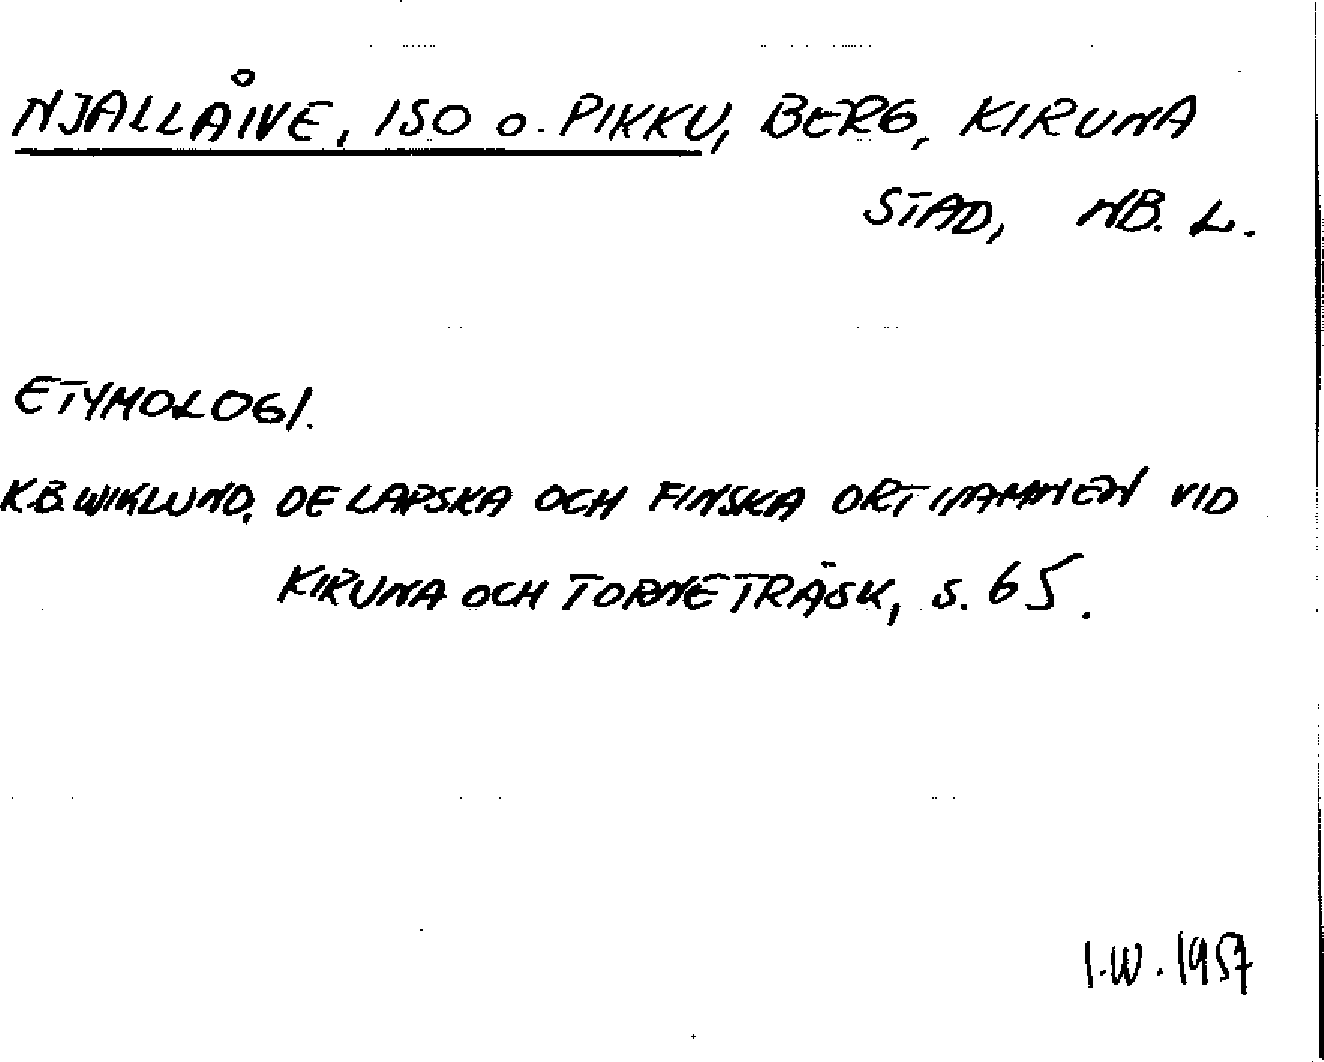 NJALLÅIVE, ISO o. PIKKU, BERG, KIRUNA
STAD, NB. L.
ETYMOLOGI.
K.B. WIKLUND, DE LAPSKA OCH FINSKA ORTNAMNEN VID
KIRUNA OCH TORNETRÄSK, S. 65.
I.W. 1957